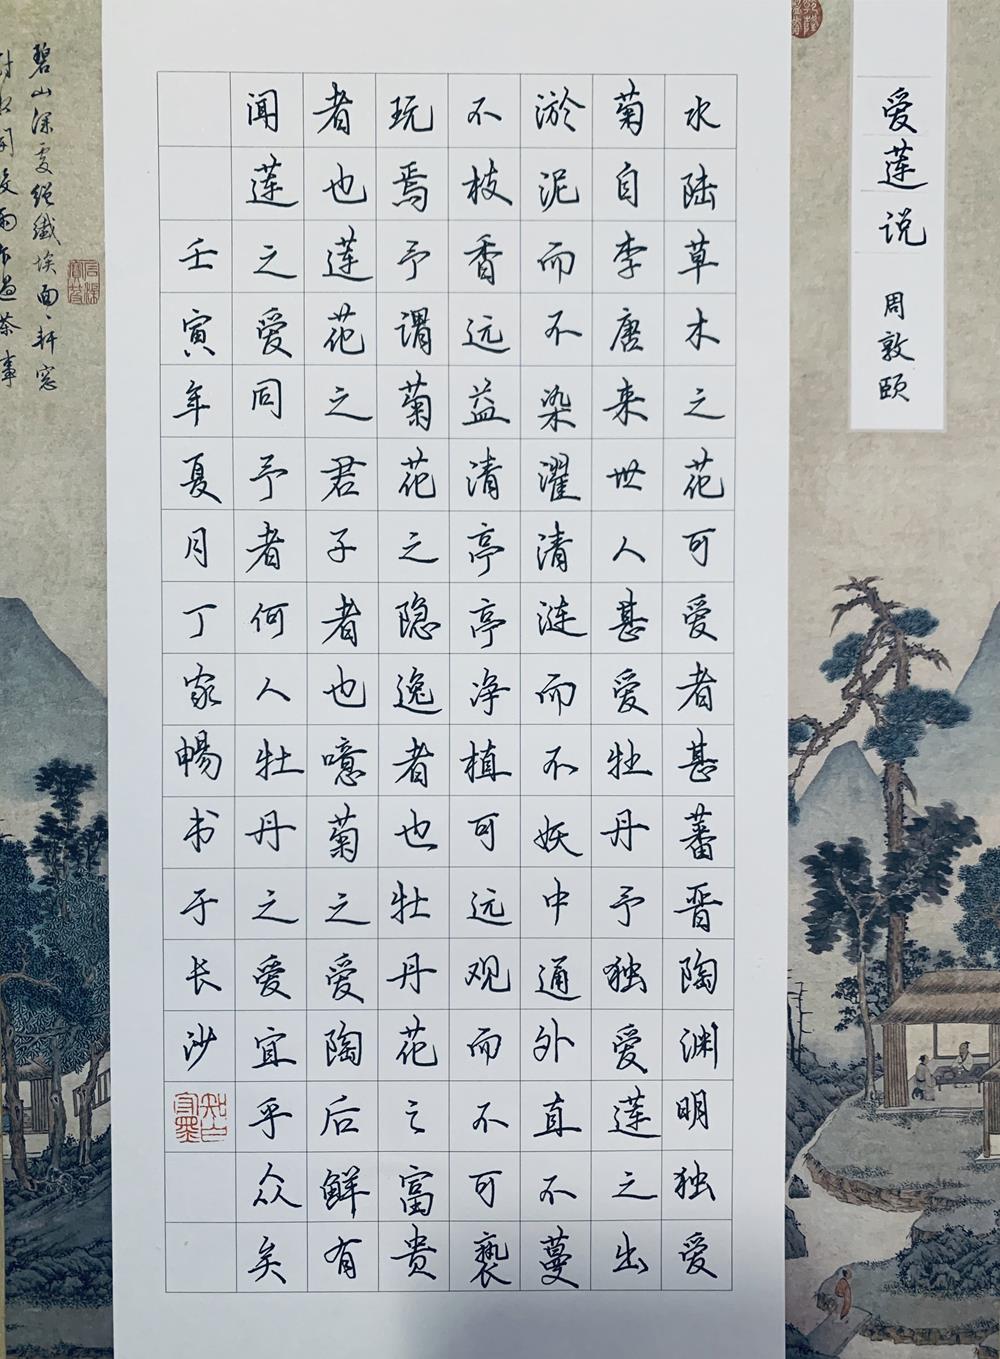 爱莲说 周敦颐
水陆草木之花可爱者甚蕃晋陶渊明独爱
菊自李唐来世人甚爱牡丹予独爱莲之出
淤泥而不染濯清涟而不妖中通外直不蔓
不枝香远益清亭亭净植可远观而不可亵
玩焉予谓菊花之隐逸者也牡丹花之富贵
者也莲花之君子者也噫菊之爱陶后鲜有
闻莲之爱同予者何人牡丹之爱宜乎众矣
壬寅年夏月丁家畅书于长沙
知白守墨
碧山深处绝纤埃面面轩窗